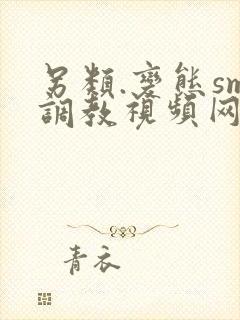 另類.變態sm
調教視頻网
青衣